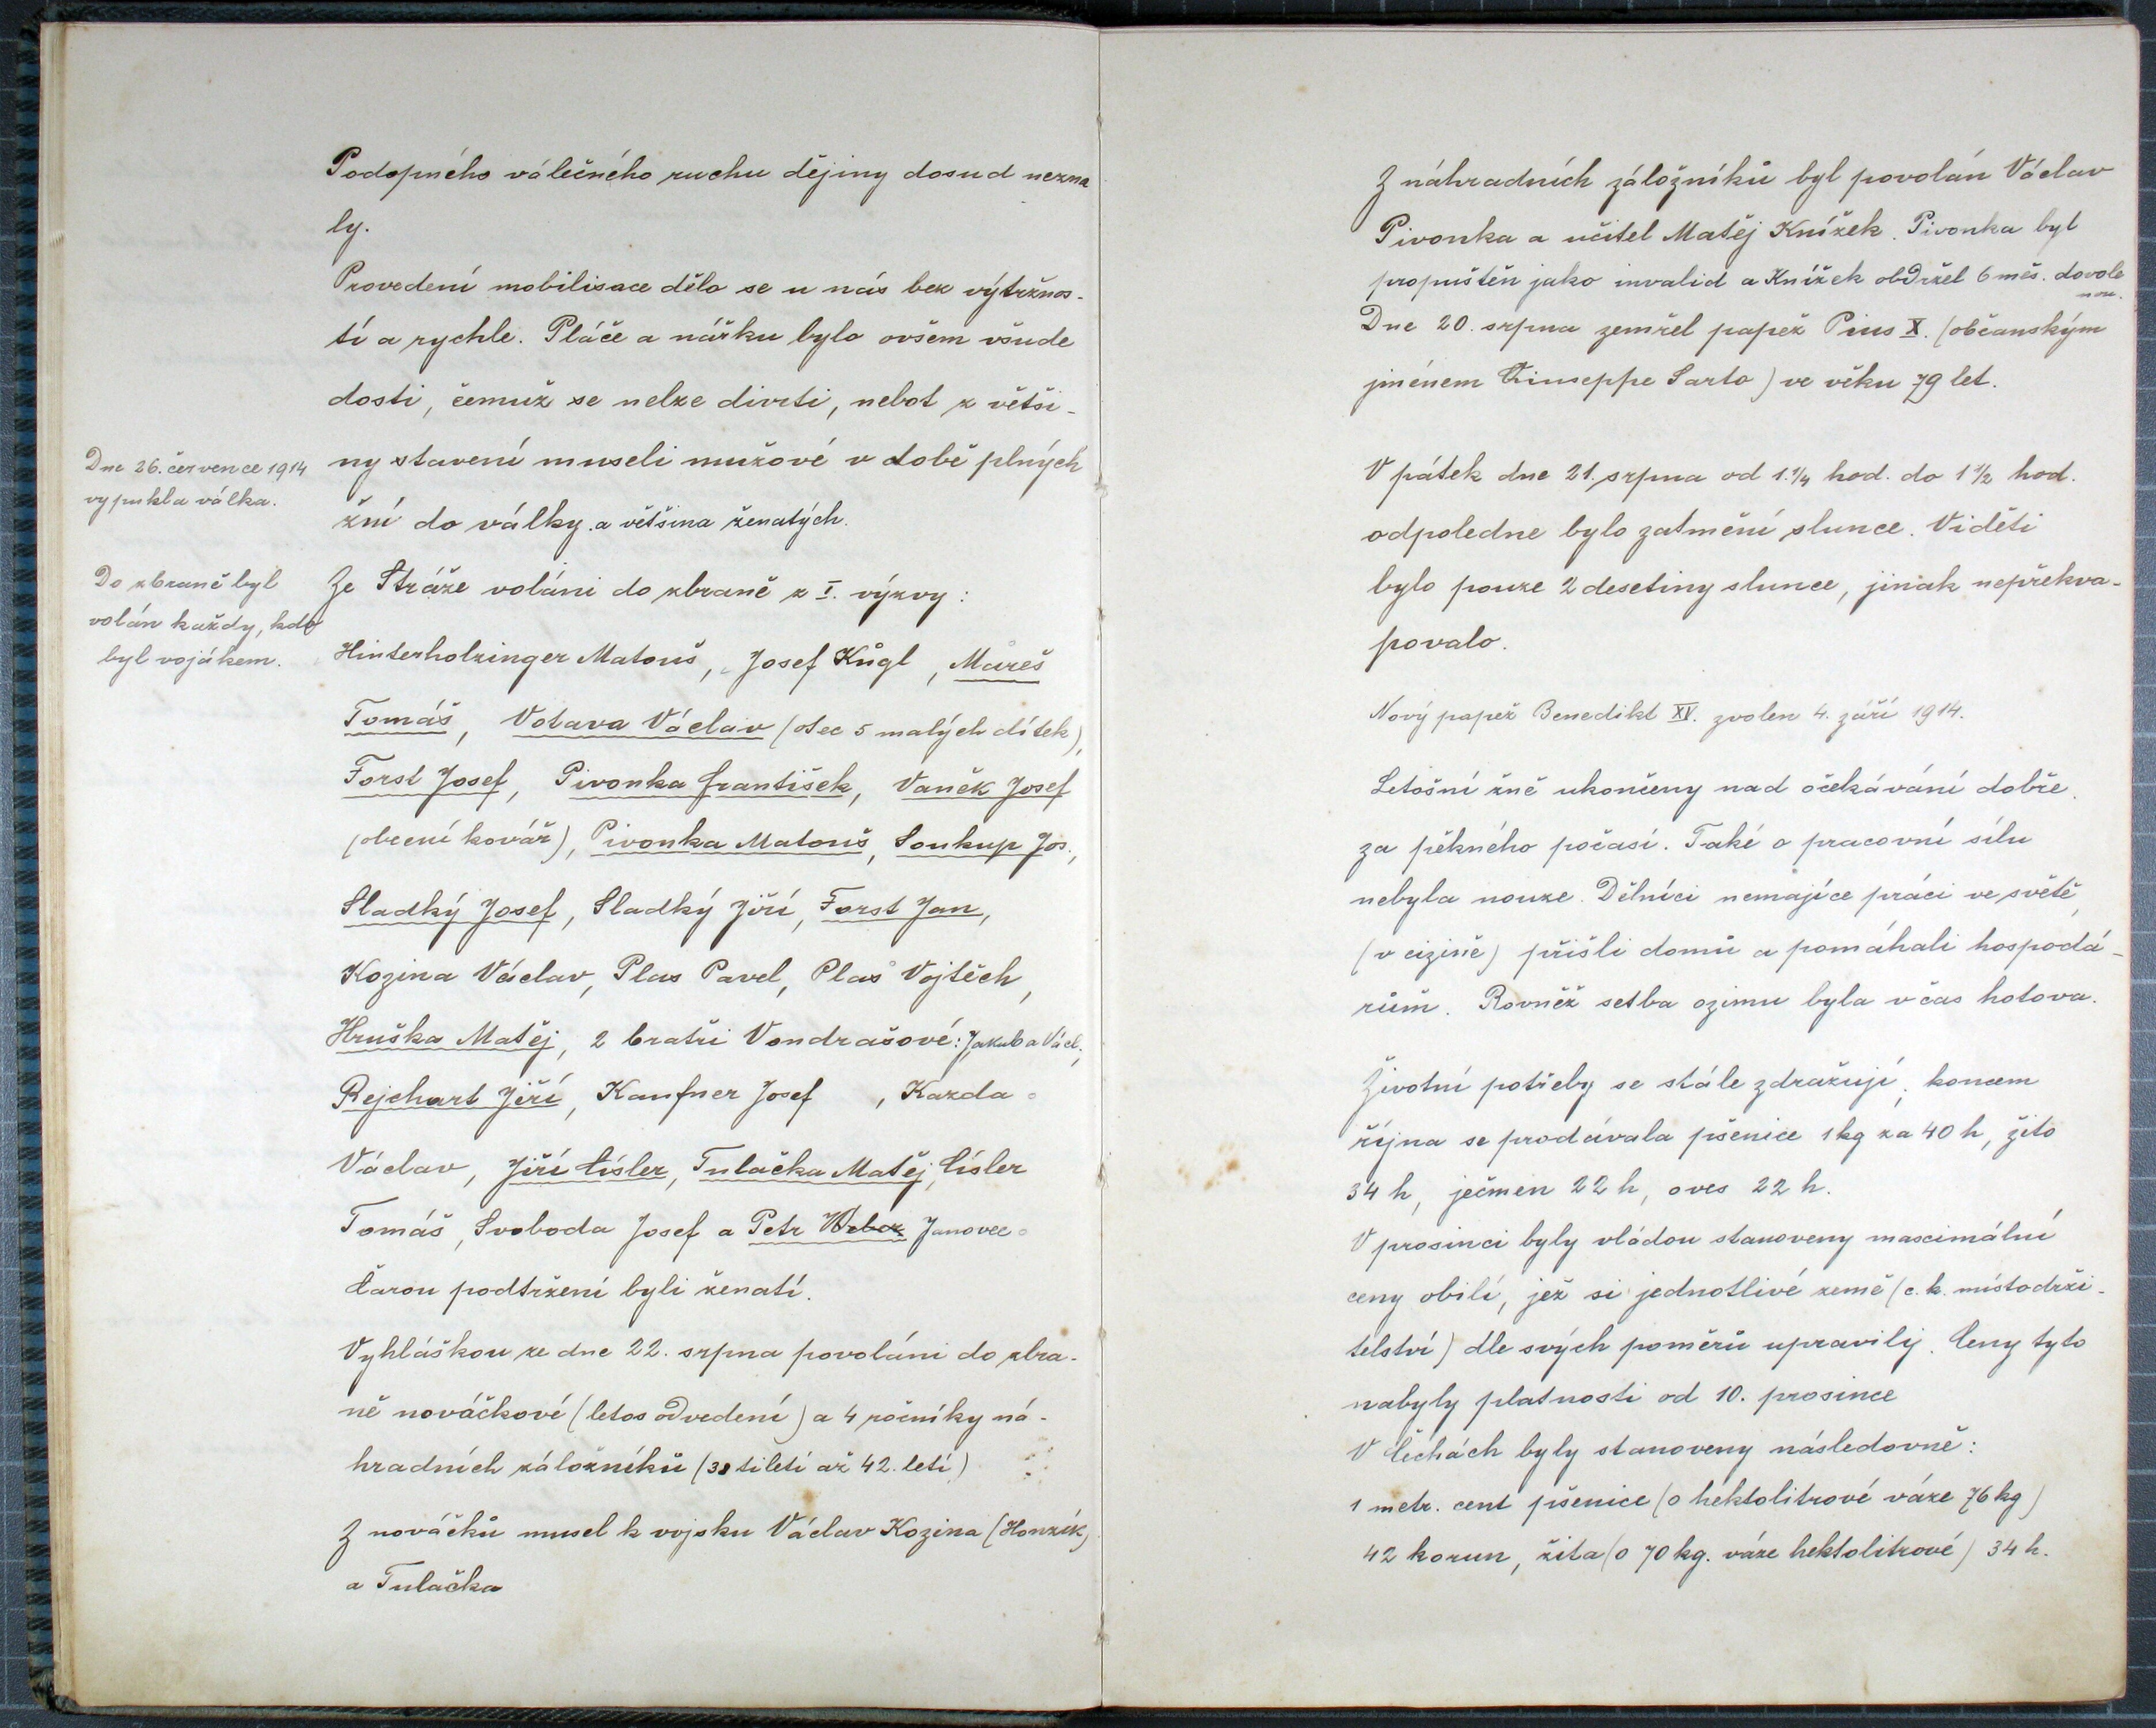 Podopného válečného ruchu dějiny dosud nezna
ly.
Provedení mobilisace dělo se u nás bez výtržnos-
tí a rychle. Pláče a nářku bylo ovšem všude
dosti, čemuž se nelze diviti, nebot z větši-
Dne 26. července 1914
vypukla válka.
ny stavení museli mužové v době plných
žní do války. a většina ženatých.
Do zbraně byl
volán každy, kdo
byl vojákem.
Ze Stráže voláni do zbraně z I. výzvy:
Hinterholzinger Matouš, Josef Kůgl, Mareš
Tomáš, Votava Václav (otec 5 malých dítek),
Forst Josef, Pivonka František, Vaněk Josef
(obecní kovář), Pivonka Matouš, Soukup Jos.,
Sladký Josef, Sladký Jiří, Forst Jan,
Kozina Václav, Plas Pavel, Plas Vojtěch,
Hruška Matěj, 2 bratři Vondrašové: Jakub a Václ.,
Rejchart Jiří, Kaufner Josef, Kazda
Václav, Jiří Císler, Tulačka Matěj, Císler
Tomáš, Svoboda Josef a Petr Weber Janovec
Čarou podtržení byli ženatí.
Vyhláškou ze dne 22. srpna povoláni do zbra-
ně nováčkové (letos odvedení) a 4 ročníky ná-
hradních záložníků (38 tiletí až 42. letí)
Z nováčků musel k vojsku Václav Kozina (Honzík)
a Tulačka
Z náhradních záložníků byl povolán Václav
Pivonka a učitel Matěj Knížek. Pivonka byl
propuštěn jako invalid a Knížek obdržel 6 měs. dovole
nou.
Dne 20. srpna zemřel papež Pius X. (občanským
jménem Giuseppe Sarto) ve věku 79 let.
V pátek dne 21. srpna od 1. 1/4 hod. do 1 1/2 hod.
odpoledne bylo zatmění slunce. Viděti
bylo pouze 2 desetiny slunce, jinak nepřekva-
povalo.
Nový papež Benedikt XV. zvolen 4. září 1914.
Letošní žně ukončeny nad očekávání dobře.
za pěkného počasí. Také o pracovní sílu
nebyla nouze. Dělníci nemajíce práci ve světě,
(v cizině) přišli domů a pomáhali hospodá-
rům. Rovněž setba ozimu byla včas hotova.
Životní potřeby se stále zdražují, koncem
října se prodávala pšenice 1 kg za 40 h, žito
34 h, ječmen 22 h, oves 22 h.
V prosinci byly vládou stanoveny maximální
ceny obilí, jež si jednotlivé země (c. k. místodrži-
telství) dle svých poměrů upravily. Ceny tyto
nabyly platnosti od 10. prosince
V Čechách byly stanoveny následovně:
1 metr. cent pšenice (o hektolitrové váze 76 kg)
42 korun, žita (o 70 kg. váze hektolitrové) 34 h.